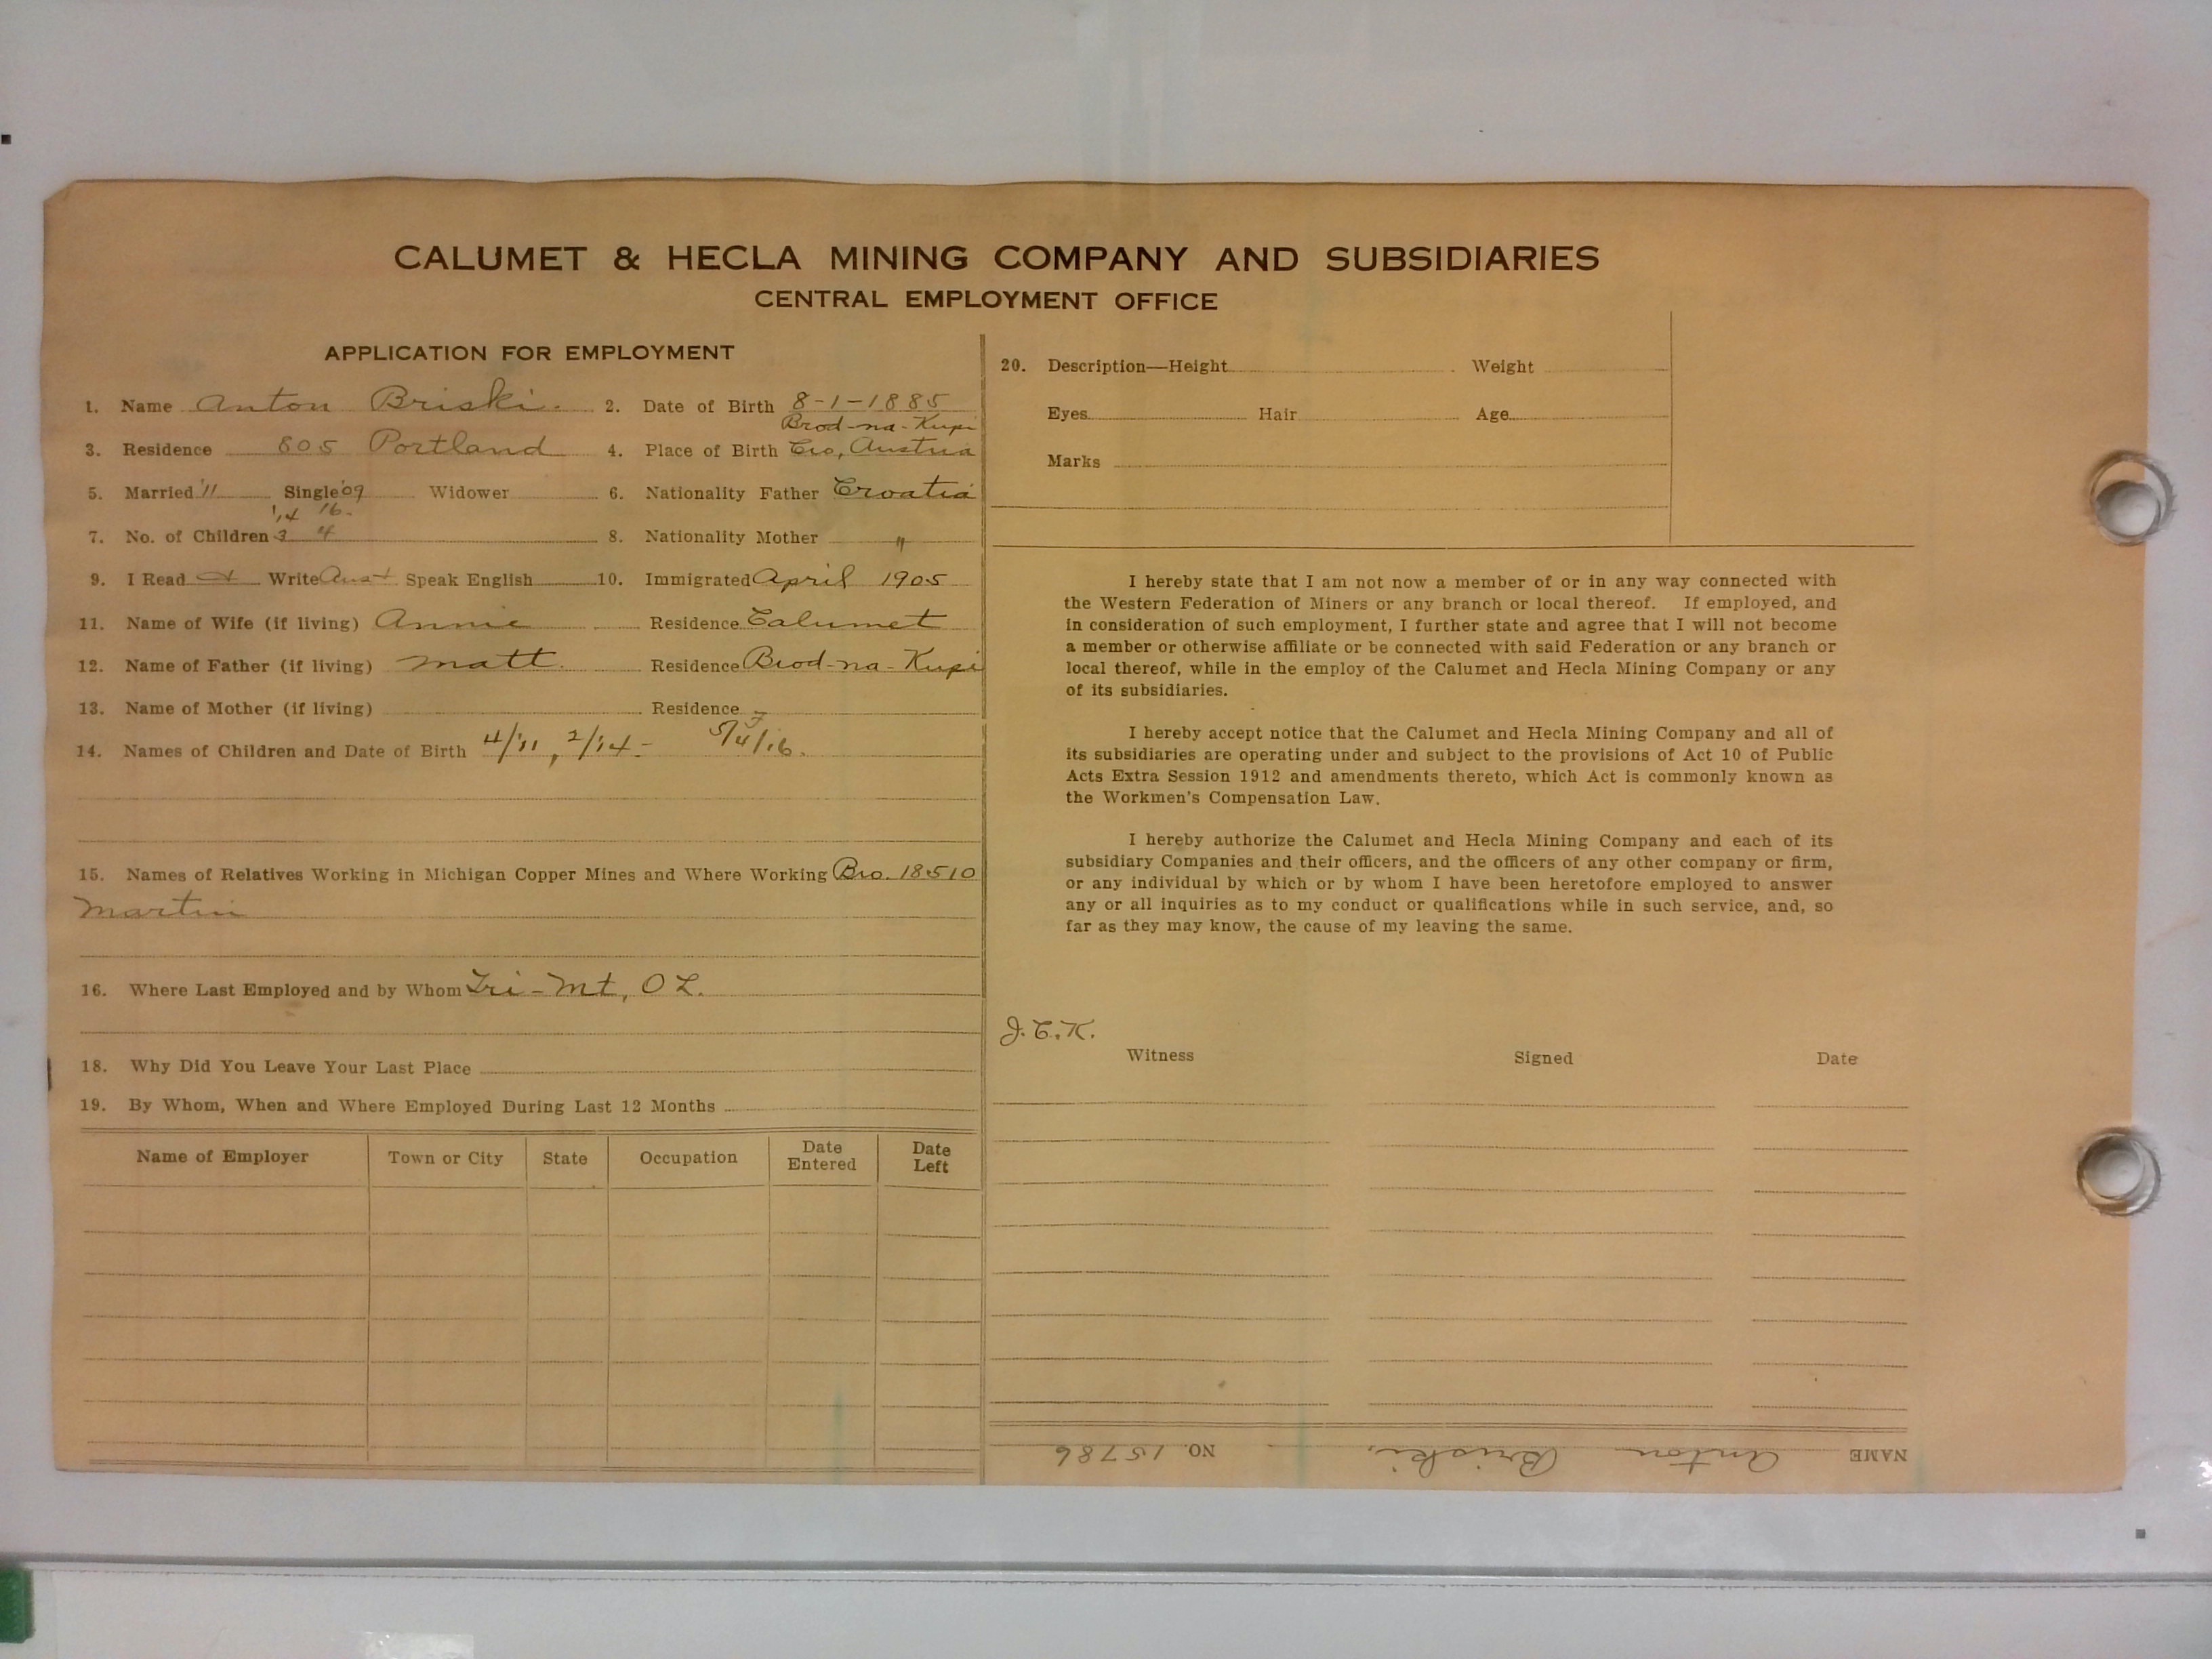 CALUMET & HECLA MINING COMPANY AND SUBSIDIARIES
CENTRAL EMPLOYMENT OFFICE
APPLICATION FOR EMPLOYMENT
1. Name Anton Briski. 2. Date of Birth 8-1-1885
Brod-na-Kupi
3. Residence 805 Portland 4. Place of Birth Cro, Austria
5. Married '11 Single '09 Widower 6. Nationality Father Croatia
'14 16-
7. No. of Children 3 4 8. Nationality Mother "
9. I Read & Write Aust Speak English 10. Immigrated April 1905
11. Name of Wife (if living) Annie Residence Calumet
12. Name of Father (if living) Matt. Residence Brod-na-Kupi
13. Name of Mother (if living) Residence
14. Names of Children and Date of Birth 4/'11, 2/'14- 5/4/16.
15. Names of Relatives Working in Michigan Copper Mines and Where Working Bro. 18510
Martin
16. Where Last Employed and by Whom Tri-Mt, O L.
18. Why Did You Leave Your Last Place
19. By Whom, When and Where Employed During Last 12 Months
Name of Employer Town or City State Occupation Date Entered Date Left
20. Description—Height Weight
Eyes Hair Age
Marks
I hereby state that I am not now a member of or in any way connected with
the Western Federation of Miners or any branch or local thereof. If employed, and
in consideration of such employment, I further state and agree that I will not become
a member or otherwise affiliate or be connected with said Federation or any branch or
local thereof, while in the employ of the Calumet and Hecla Mining Company or any
of its subsidiaries.
I hereby accept notice that the Calumet and Hecla Mining Company and all of
its subsidiaries are operating under and subject to the provisions of Act 10 of Public
Acts Extra Session 1912 and amendments thereto, which Act is commonly known as
the Workmen's Compensation Law.
I hereby authorize the Calumet and Hecla Mining Company and each of its
subsidiary Companies and their officers, and the officers of any other company or firm,
or any individual by which or by whom I have been heretofore employed to answer
any or all inquiries as to my conduct or qualifications while in such service, and, so
far as they may know, the cause of my leaving the same.
J.C.K.
Witness Signed Date
NAME Anton Briski, NO. 15786